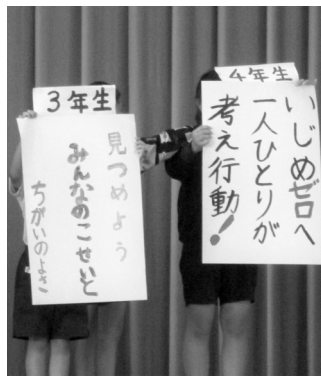 3年生
見つめよう
みんなのこせいと
ちがいのよさ
4年生
いじめゼロへ
一人ひとりが
考え行動!